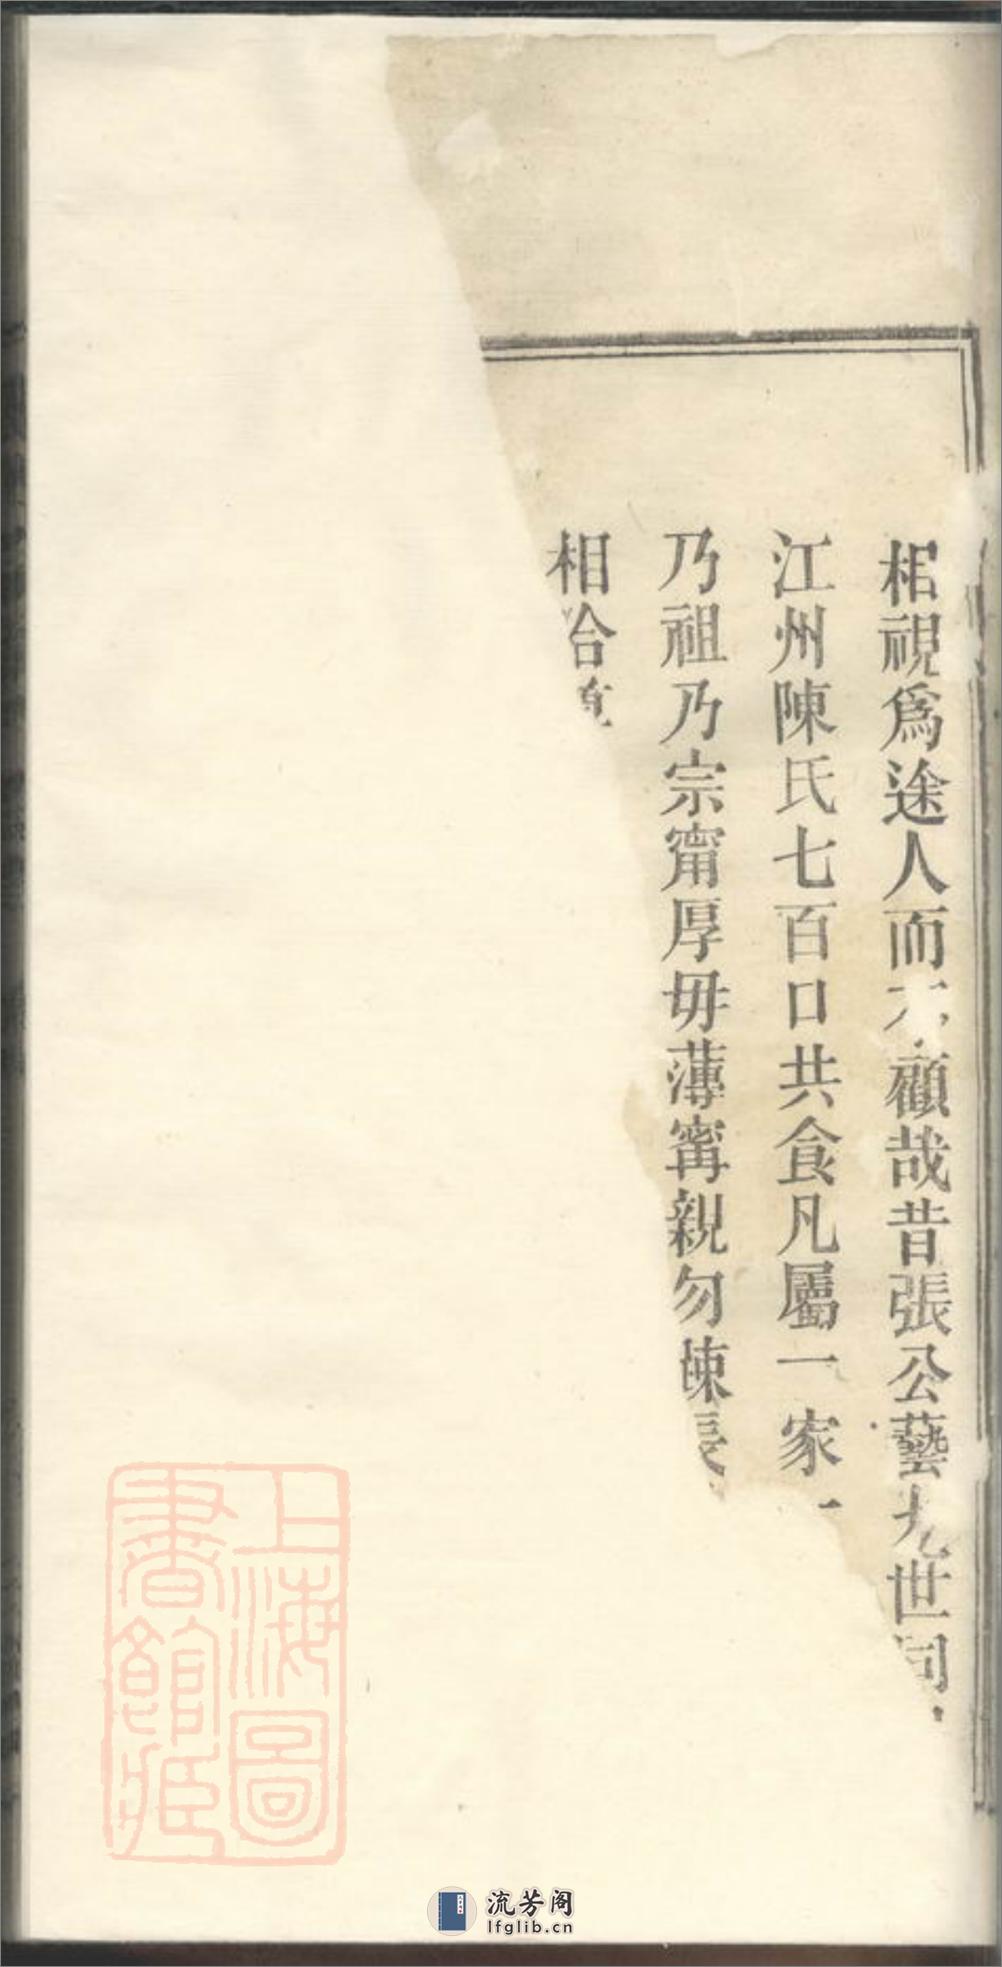 相視爲途人而不顧哉昔張公藝九世同
江州陳氏七百口共食凡屬一家一
乃祖乃宗甯厚毋薄寗親勿疎長
相洽
上海圖書館藏
流芳阁
lfglib.cn